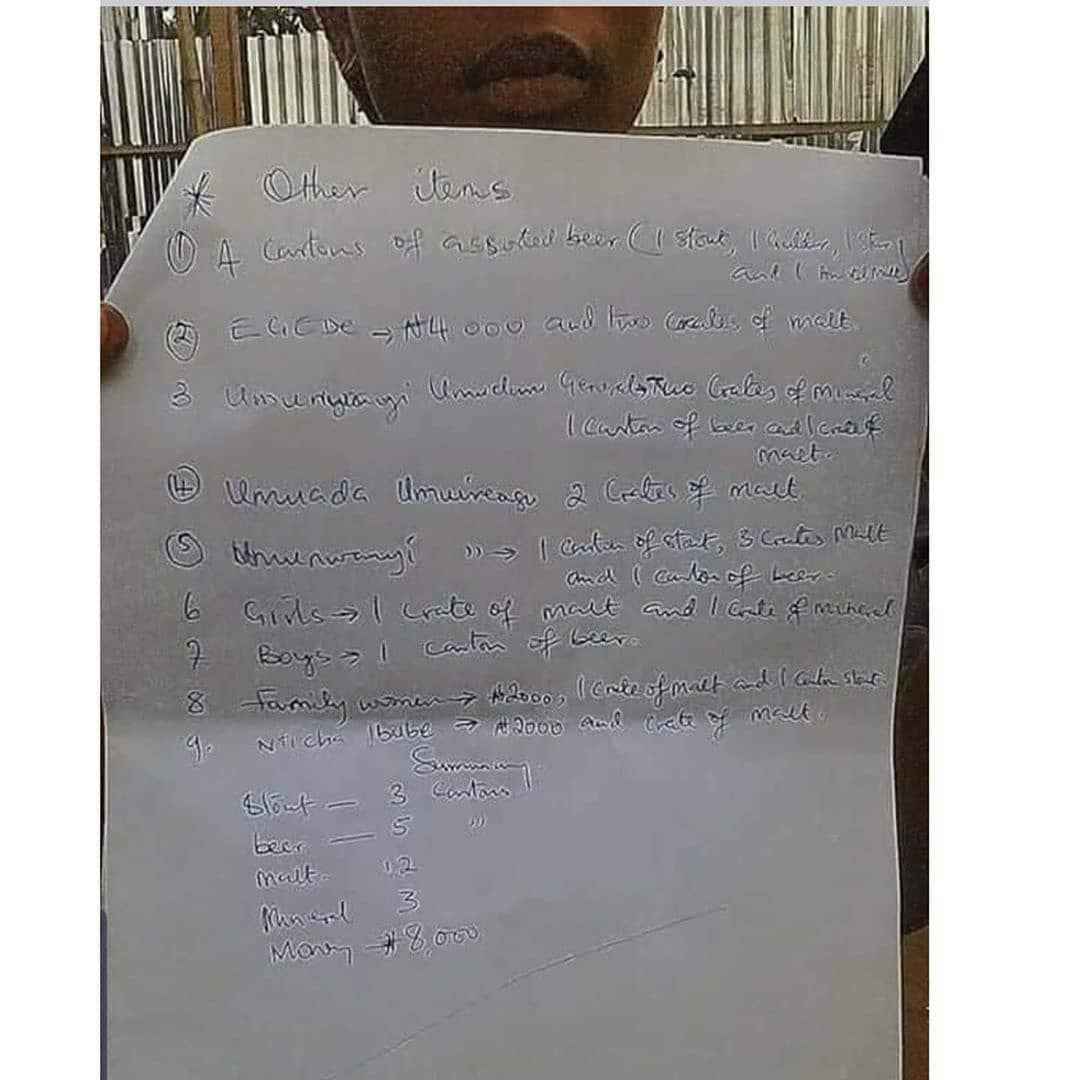 * Other items
① 4 Cartons of assorted beer (1 stout, 1 Gulder, 1 Star
and 1
② EGEDE → ₦4,000 and two Crates of malt
3 Umunwanyi Umudim General → Two Crates of mineral
1 Carton of beer and 1 crate of
malt.
④ Umuada 2 Crates of malt.
⑤ Umunwanyi " → 1 Carton of stout, 3 Crates Malt
and 1 carton of beer.
6 Girls → 1 crate of malt and 1 Crate of mineral
7 Boys → 1 carton of beer.
8 Family women → ₦2000, 1 crate of malt and 1 Carton stout.
9. Nticha Ibube → ₦2000 and crate of malt.
Summary
Stout — 3 Cartons
beer — 5 "
Malt - 12
Mineral 3
Money ₦8,000